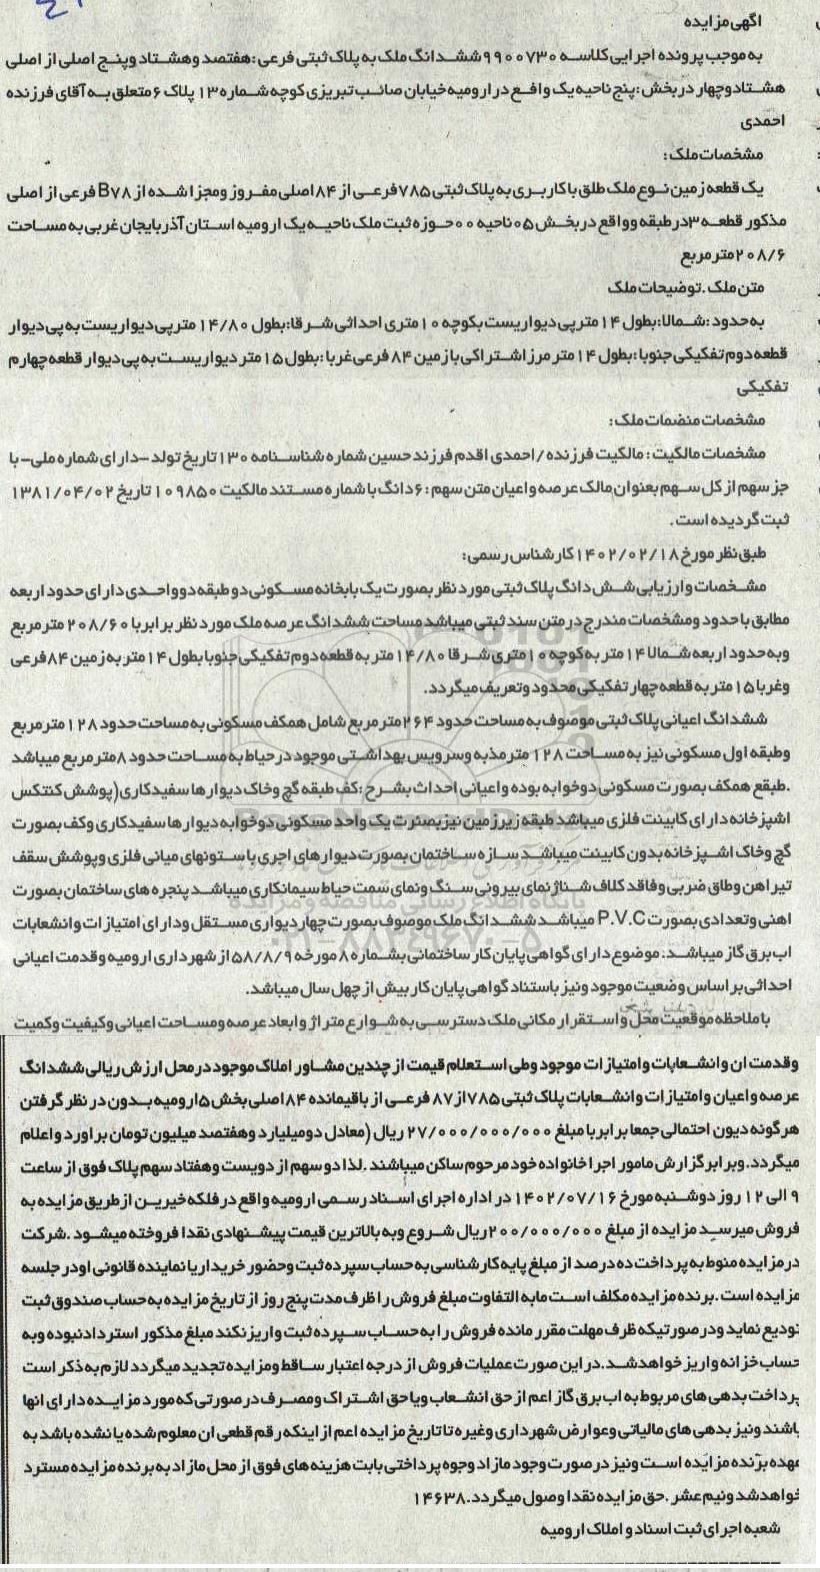 آگهی مزایده
به موجب پرونده اجرایی کلاسه ۹۹۰۰۷۳۰ ششدانگ ملک به پلاک ثبتی فرعی :هفتصد وهشتاد وپنج اصلی از اصلی
هشتادوچهار در بخش :پنج ناحیه یک واقع در ارومیه خیابان صائب تبریزی کوچه شماره ۱۳ پلاک ۶ متعلق به آقای فرزنده
احمدی
مشخصات ملک :
یک قطعه زمین نوع ملک طلق با کاربری به پلاک ثبتی ۷۸۵ فرعی از ۸۴ اصلی مفروز ومجزا شده از B۷۸ فرعی از اصلی
مذکور قطعه ۳ در طبقه و واقع در بخش ۰۵ ناحیه ۰۰ حوزه ثبت ملک ناحیه یک ارومیه استان آذربایجان غربی به مساحت
۲۰۸/۶ مترمربع
متن ملک .توضیحات ملک
به حدود :شمالا:بطول ۱۴ مترپی دیواریست بکوچه ۱۰ متری احداثی شرقا:بطول ۱۴/۸۰ مترپی دیواریست به پی دیوار
قطعه دوم تفکیکی جنوبا :بطول ۱۴ متر مرز اشتراکی با زمین ۸۴ فرعی غربا :بطول ۱۵ متر دیواریست به پی دیوار قطعه چهارم
تفکیکی
مشخصات منضمات ملک :
مشخصات مالکیت : مالکیت فرزنده /احمدی اقدم فرزند حسین شماره شناسنامه ۱۳۰ تاریخ تولد -دارای شماره ملی- با
جز سهم از کل سهم بعنوان مالک عرصه واعیان متن سهم :۶ دانگ با شماره مستند مالکیت ۱۰۹۸۵۰ تاریخ ۱۳۸۱/۰۴/۰۲
ثبت گردیده است .
طبق نظر مورخ ۱۴۰۲/۰۲/۱۸ کارشناس رسمی :
مشخصات وارزیابی شش دانگ پلاک ثبتی مورد نظر بصورت یک بابخانه مسکونی دو طبقه دو واحدی دارای حدود اربعه
مطابق با حدود ومشخصات مندرج در متن سند ثبتی میباشد مساحت ششدانگ عرصه ملک مورد نظر برابر با ۲۰۸/۶۰ مترمربع
وبه حدود اربعه شمالا ۱۴ متر به کوچه ۱۰ متری شرقا ۱۴/۸۰ متر به قطعه دوم تفکیکی جنوبا بطول ۱۴ متر به زمین ۸۴ فرعی
وغربا ۱۵ متر به قطعه چهار تفکیکی محدود وتعریف میگردد.
ششدانگ اعیانی پلاک ثبتی موصوف به مساحت حدود ۲۶۴ مترمربع شامل همکف مسکونی به مساحت حدود ۱۲۸ مترمربع
وطبقه اول مسکونی نیز به مساحت ۱۲۸ متر مذبه وسرویس بهداشتی موجود در حیاط به مساحت حدود ۸ مترمربع میباشد
.طبقع همکف بصورت مسکونی دوخوابه بوده واعیانی احداث بشرح :کف طبقه گچ وخاک دیوارها سفیدکاری(پوشش کنتکس
اشپزخانه دارای کابینت فلزی میباشد طبقه زیر زمین نیز بصئرت یک واحد مسکونی دوخوابه دیوارها سفیدکاری وکف بصورت
گچ وخاک اشپزخانه بدون کابینت میباشد سازه ساختمان بصورت دیوارهای اجری با ستونهای میانی فلزی وپوشش سقف
تیراهن وطاق ضربی وفاقد کلاف شناژ نمای بیرونی سنگ ونمای سمت حیاط سیمانکاری میباشد پنجره های ساختمان بصورت
اهنی وتعدادی بصورت P.V.C میباشد ششدانگ ملک موصوف بصورت چهاردیواری مستقل ودارای امتیازات وانشعابات
اب برق گاز میباشد . موضوع دارای گواهی پایان کار ساختمانی بشماره ۸ مورخه ۵۸/۸/۹ از شهرداری ارومیه وقدمت اعیانی
احداثی بر اساس وضعیت موجود ونیز باستناد گواهی پایان کار بیش از چهل سال میباشد.
با ملاحظه موقعیت محل واستقرار مکانی ملک دسترسی به شوارع متراژ وابعاد عرصه ومساحت اعیانی وکیفیت وکمیت
وقدمت ان وانشعابات وامتیازات موجود وطی استعلام قیمت از چندین مشاور املاک موجود در محل ارزش ریالی ششدانگ
عرصه واعیان وامتیازات وانشعابات پلاک ثبتی ۷۸۵ از ۸۷ فرعی از باقیمانده ۸۴ اصلی بخش ۵ ارومیه بدون در نظر گرفتن
هرگونه دیون احتمالی جمعا برابر با مبلغ ۲۷/۰۰۰/۰۰۰/۰۰۰ ریال (معادل دو میلیارد وهفتصد میلیون تومان براورد واعلام
میگردد. وبرابر گزارش مامور اجرا خانواده خود مرحوم ساکن میباشند .لذا دو سهم از دویست وهفتاد سهم پلاک فوق از ساعت
۹ الی ۱۲ روز دوشنبه مورخ ۱۴۰۲/۰۷/۱۶ در اداره اجرای اسناد رسمی ارومیه واقع در فلکه خیرین از طریق مزایده به
فروش میرسد مزایده از مبلغ ۲۰۰/۰۰۰/۰۰۰ ریال شروع وبه بالاترین قیمت پیشنهادی نقدا فروخته میشود .شرکت
در مزایده منوط به پرداخت ده درصد از مبلغ پایه کارشناسی به حساب سپرده ثبت وحضور خریدار یا نماینده قانونی او در جلسه
مزایده است .برنده مزایده مکلف است مابه التفاوت مبلغ فروش را ظرف مدت پنج روز از تاریخ مزایده به حساب صندوق ثبت
تودیع نماید ودر صورتیکه ظرف مهلت مقرر مانده فروش را به حساب سپرده ثبت واریز نکند مبلغ مذکور استرداد نبوده وبه
حساب خزانه واریز خواهد شد .در این صورت عملیات فروش از درجه اعتبار ساقط ومزایده تجدید میگردد لازم به ذکر است
پرداخت بدهی های مربوط به اب برق گاز اعم از حق انشعاب ویا حق اشتراک ومصرف در صورتی که مورد مزایده دارای انها
باشند ونیز بدهی های مالیاتی وعوارض شهرداری وغیره تا تاریخ مزایده اعم از اینکه رقم قطعی ان معلوم شده یا نشده باشد به
عهده برنده مزایده است ونیز در صورت وجود مازاد وجوه پرداختی بابت هزینه های فوق از محل مازاد به برنده مزایده مسترد
خواهد شد ونیم عشر .حق مزایده نقدا وصول میگردد.۱۴۶۳۸
شعبه اجرای ثبت اسناد و املاک ارومیه